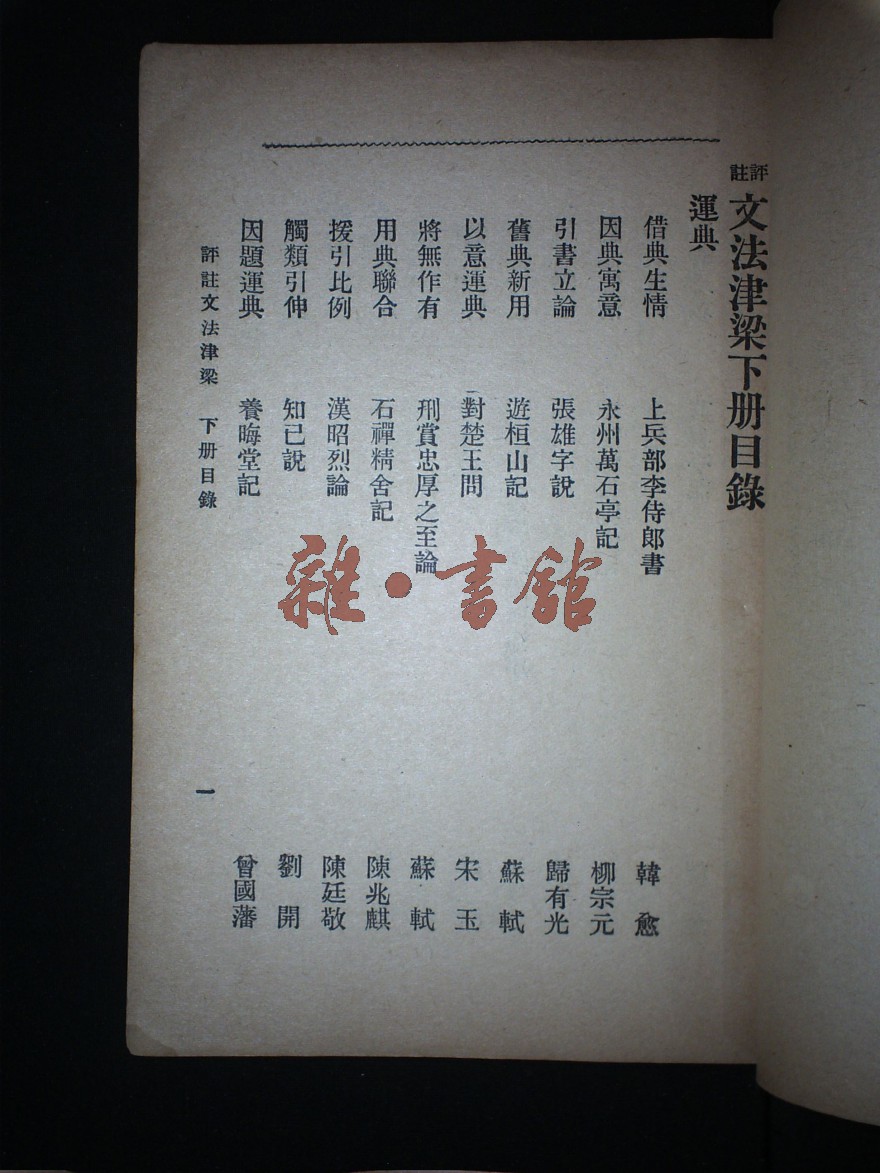 評註文法津梁下册目錄
運典
借典生情 上兵部李侍郎書 韓愈
因典寓意 永州萬石亭記 柳宗元
引書立論 張雄字說 歸有光
舊典新用 遊桓山記 蘇軾
以意運典 對楚王問 宋玉
將無作有 刑賞忠厚之至論 蘇軾
用典聯合 石禪精舍記 陳兆麒
援引比例 漢昭烈論 陳廷敬
觸類引伸 知已說 劉開
因題運典 養晦堂記 曾國藩
評註文法津梁 下册目錄 一
雜·書館